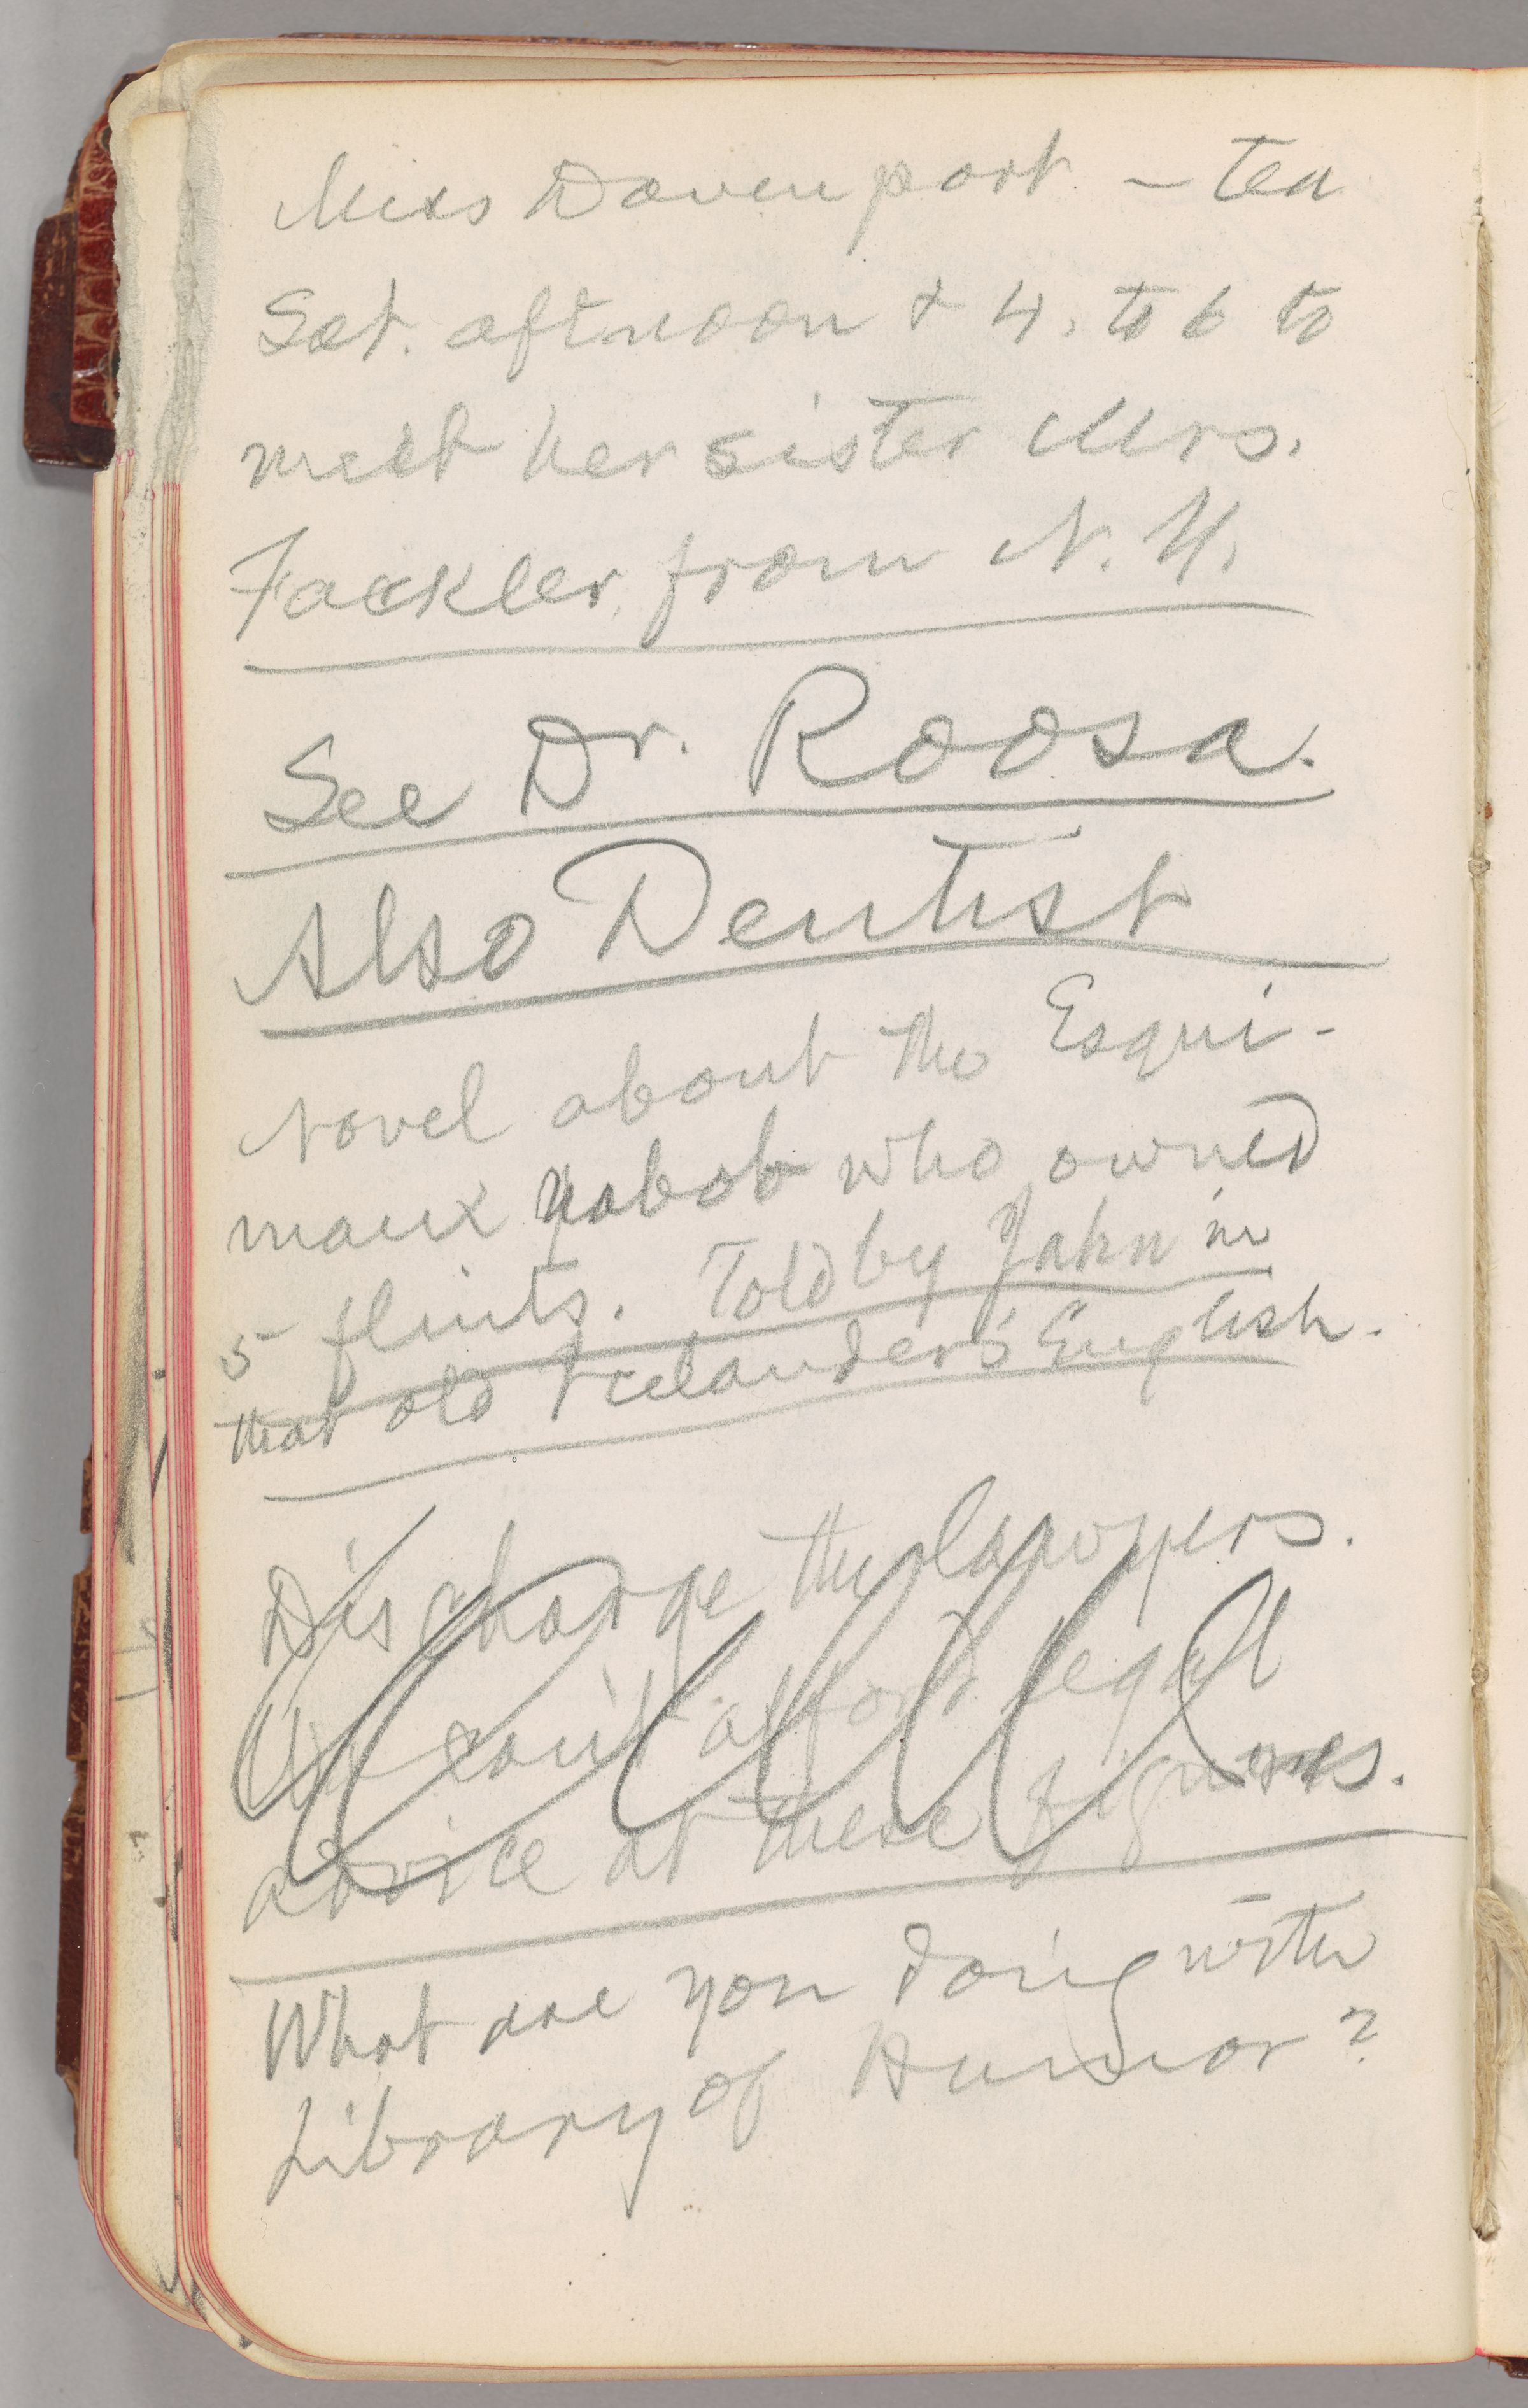 Miss Davenport – tea
Sat. aftnoon & 4. to 6 to
meet her sister Mrs.
Fackler, from N. Y.
See Dr. Roosa.
Also Dentist
Novel about the Esqui-
maux Nabob who owned
5 flints. Told by John in
that old Icelander's English.
Discharge the lawyers.
We can't afford legal
advice at these figures.
What are you doing with
Library of Humor?